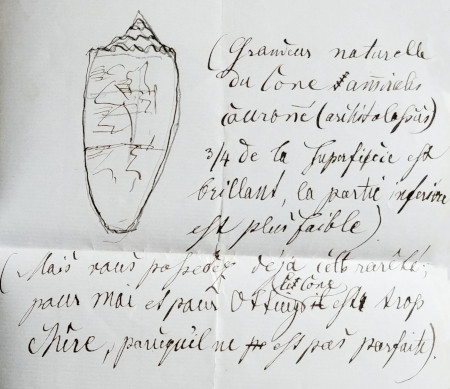 (Grandeur naturelle
du Cone amirale
couronné (
3/4 de la superficie est
brillant, la partie inferieure
est plus faible)
(Mais vous possedez déjà cette rareté;
pour moi et pour ce Cone est trop
chère, parcequ'il ne est pas parfait).